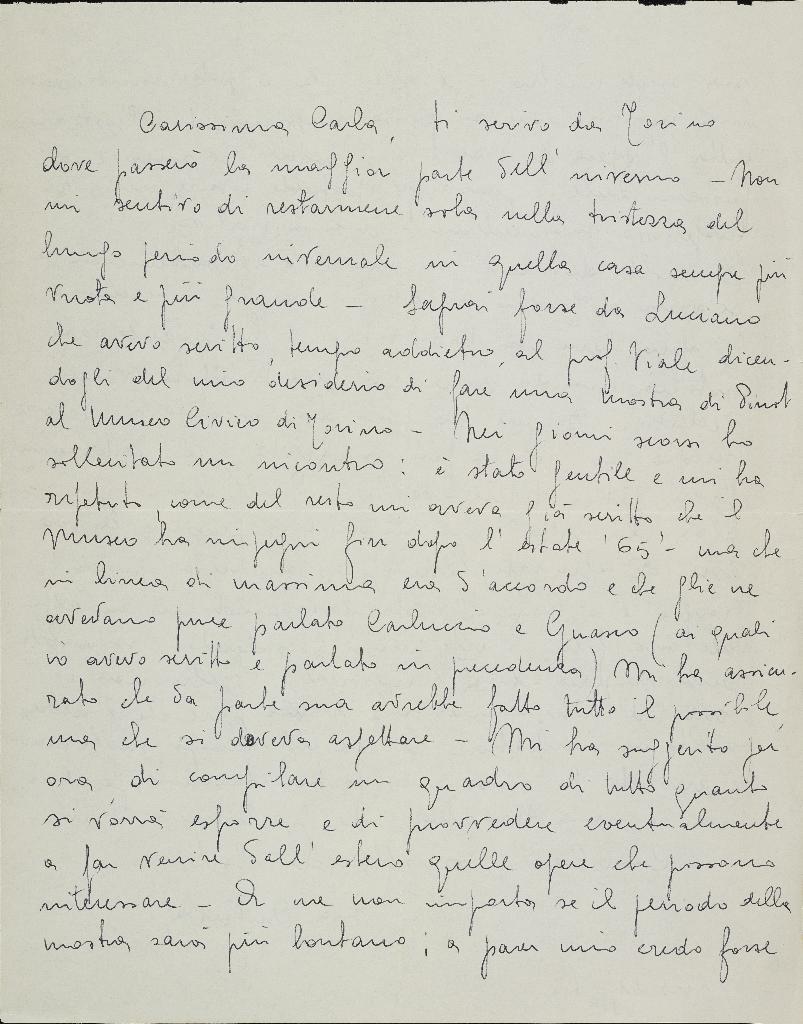 Carissima Carla, ti scrivo da Torino
dove passerò la maggior parte dell'inverno - Non
mi sentivo di restarmene sola nella tristezza del
lungo periodo invernale in quella casa sempre più
vuota e più grande - Saprai forse da Luciano
che avevo scritto, tempo addietro, al prof. Viale dicen-
dogli del mio desiderio di fare una mostra di Pinot
al Museo Civico di Torino - Nei giorni scorsi ho
sollecitato un incontro: è stato gentile e mi ha
ripetuto, come del resto mi aveva già scritto che il
Museo ha impegni fin dopo l'estate '65' - ma che
in linea di massima era d'accordo e che glie ne
avevano pure parlato Carluccio e Guasco (ai quali
io avevo scritto e parlato in precedenza) Mi ha assicu-
rato che da parte sua avrebbe fatto tutto il possibile,
ma che si doveva aspettare - Mi ha suggerito per
ora di compilare un quadro di tutto quanto
si vorrà esporre e di provvedere eventualmente
a far venire dall'estero quelle opere che possano
interessare - A me non importa se il periodo della
mostra sarà più lontano; a parer mio credo forse